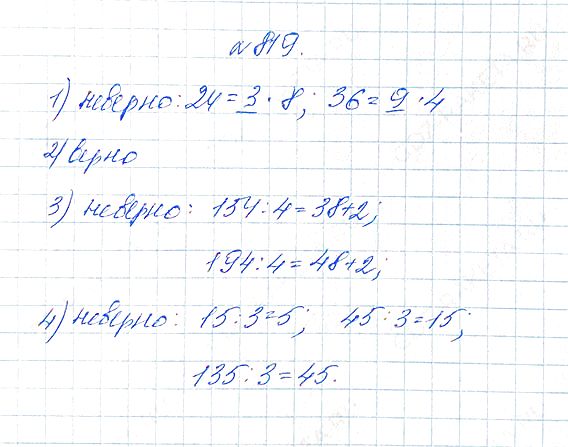 № 819.
1) неверно: 24 = 3 · 8; 36 = 9 · 4
2) верно
3) неверно: 154 : 4 = 38+2;
194 : 4 = 48+2;
4) неверно: 15 : 3 = 5; 45 : 3 = 15;
135 : 3 = 45.